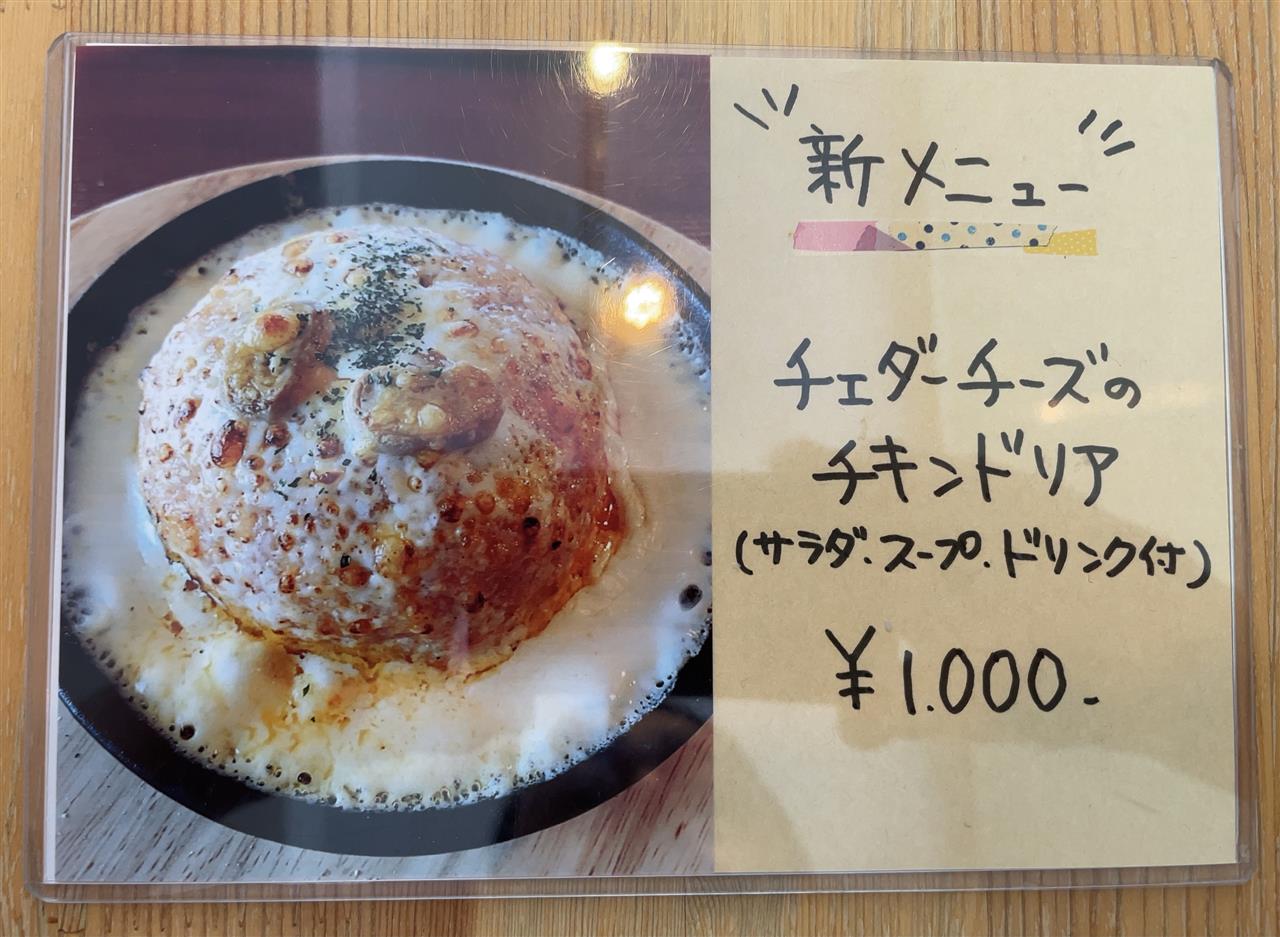 新メニュー
チェダーチーズの
チキンドリア
(サラダ.スープ.ドリンク付)
¥1.000-